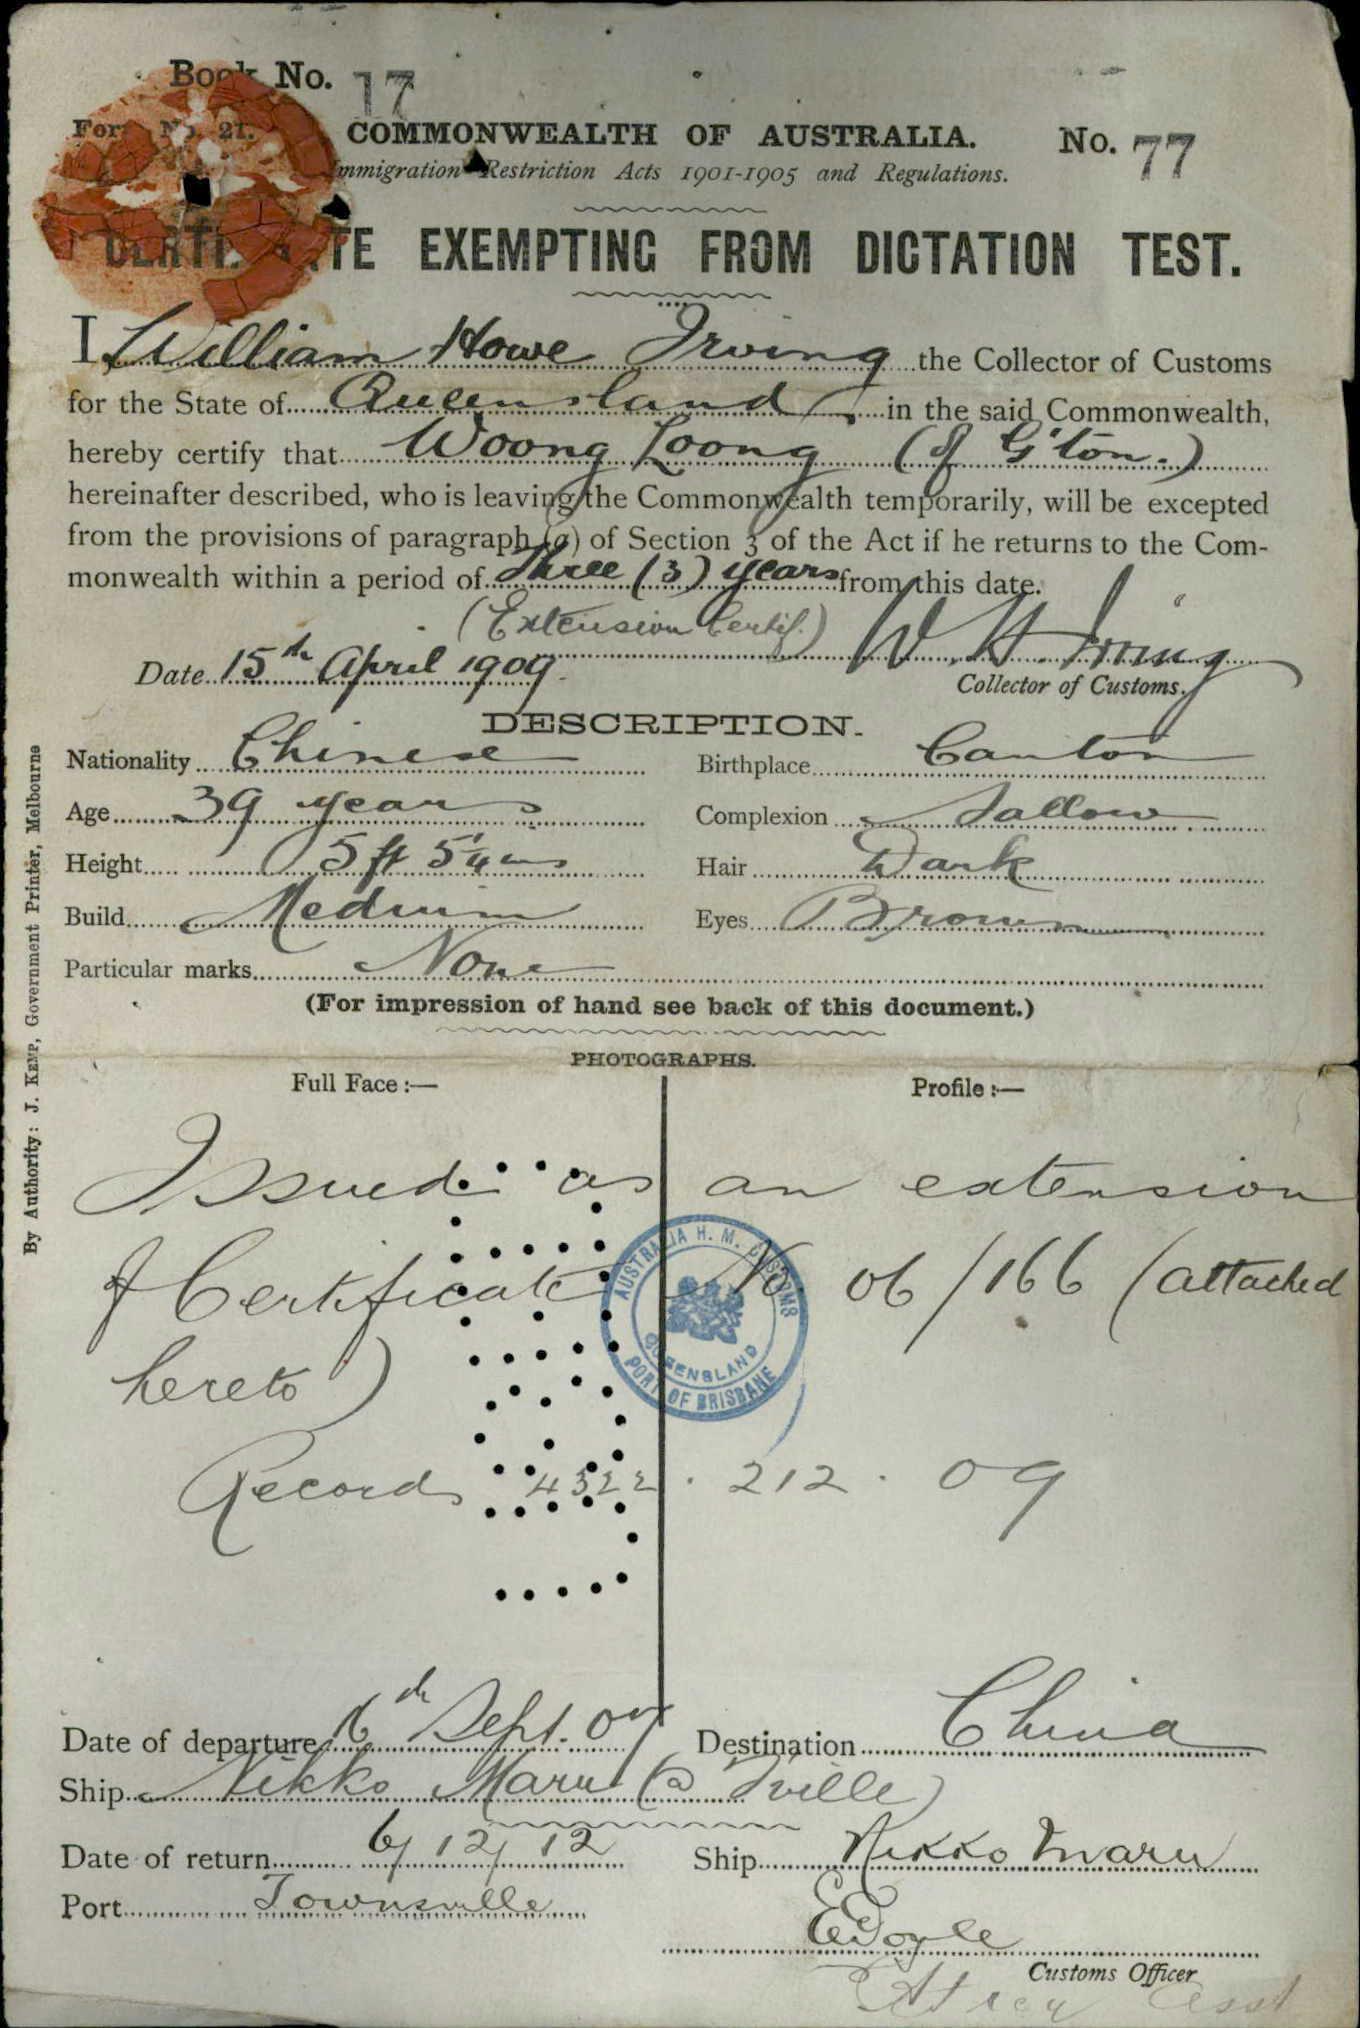 Book No. 17
Form No. 21. COMMONWEALTH OF AUSTRALIA. No. 77
Immigration Restriction Acts 1901-1905 and Regulations.
CERTIFICATE EXEMPTING FROM DICTATION TEST.
I William Howe Irving the Collector of Customs
for the State of Queensland in the said Commonwealth,
hereby certify that Woong Loong (of G'ton.)
hereinafter described, who is leaving the Commonwealth temporarily, will be excepted
from the provisions of paragraph (a) of Section 3 of the Act if he returns to the Com-
monwealth within a period of Three (3) years from this date.
(Extension Certif.) W. H. Irving
Date 15th April 1909. Collector of Customs.
DESCRIPTION.
Nationality Chinese Birthplace Canton
Age 39 years Complexion Sallow
Height 5 ft 5 1/4 ins Hair Dark
Build Medium Eyes Brown
Particular marks None
(For impression of hand see back of this document.)
PHOTOGRAPHS.
Full Face :— Profile :—
Issued as an extension
of Certificate No 06/166 (attached
hereto)
AUSTRALIA H. M. CUSTOMS
QUEENSLAND
PORT OF BRISBANE
Record 4322 . 212 . 09
Date of departure Sept. 09 Destination China
Ship Nikko Maru (@ Tville)
Date of return 6/12/12 Ship Nikko Maru
Port Townsville
E Doyle
Customs Officer
By Authority: J. KEMP, Government Printer, Melbourne